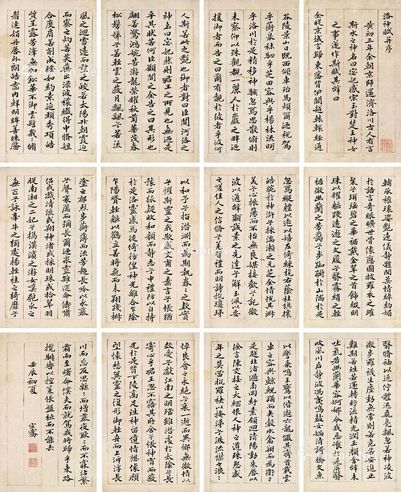 洛神賦并序
黃初三年余朝京師還濟洛川古人有言
斯水之神名曰宓妃感宋玉對楚王神女
之事遂作斯賦其辭曰
余從京域言歸東藩背伊闕越轘轅經通
谷陵景山日既西傾車殆馬煩爾迺稅駕
乎蘅皋秣駟乎芝田容與乎楊林流眄
乎洛川於是精移神駭忽焉思散俯則
未察仰以殊觀覩一麗人于巖之畔迺
援御者而告之曰爾有覿於彼者乎彼何
人斯若此之艷也御者對曰臣聞河洛之
神名曰宓妃然則君王之所見也無迺是
乎其狀若何臣願聞之余告之曰其形也
翩若驚鴻婉若遊龍榮曜秋菊華茂春
松髣髴兮若輕雲之蔽月飄颻兮若流
風之迴雪遠而望之皎若太陽升朝霞迫
而察之灼若芙蕖出淥波襛纖得中修短
合度肩若削成腰如約素延頸秀項皓
質呈露芳澤無加鉛華不御雲髻峩峩修
眉連娟丹脣外朗皓齒內鮮明眸善睞靨
輔承權瓌姿艷逸儀靜體閑柔情綽態媚
於語言奇服曠世骨像應圖披羅衣之璀
粲兮珥瑤碧之華琚戴金翠之首飾綴明
珠以耀軀踐遠遊之文履曳霧綃之輕
裾微幽蘭之芳藹兮步踟躕於山隅於是
忽焉縱體以遨以嬉左倚采旄右蔭桂旗攘
皓腕於神滸兮采湍瀨之玄芝余情悅其淑
美兮心振蕩而不怡無良媒以接歡兮託微
波以通辭願誠素之先達兮解玉佩而要
之嗟佳人之信修兮羌習禮而明詩抗瓊珶
以和予兮指潛淵而為期執眷眷之款實
兮懼斯靈之我欺感交甫之棄言兮悵猶
豫而狐疑收和顏而靜志兮申禮防以自持
於是洛靈感焉徙倚傍徨神光離合乍陰
乍陽竦輕軀以鶴立若將飛而未翔踐椒
塗之郁烈步蘅薄而流芳超長吟以永慕
兮聲哀厲而彌長爾迺眾靈雜遝命儔嘯
侶或戲清流或翔神渚或採明珠或拾翠羽
從南湘之二妃攜漢濱之游女歎匏瓜之
無匹兮詠牽牛之獨處揚輕袿之猗靡兮
翳脩袖以延佇體迅飛鳧飄忽若神陵波
微步羅襪生塵動無常則若危若安進止
難期若往若還轉眄流精光潤玉顏含辭未
吐氣若幽蘭華容婀娜令我忘飡於是屏翳
收風川后靜波馮夷鳴鼓女媧清歌騰文魚
以警乘鳴玉鸞以偕逝六龍儼其齊首載雲
車之容裔鯨鯢踊而夾轂水禽翔而為衛於
是越北沚過南岡紆素領迴清陽動朱脣以
徐言陳交接之大綱恨人神之道殊怨盛
年之莫當抗羅袂以掩涕兮淚流襟之浪浪
悼良會之永絕兮哀一逝而異鄉無微情以
效愛兮獻江南之明璫雖潛處於太陰長
寄心於君王忽不悟其所舍悵神宵而蔽
光於是背下陵高足往神留遺情想像顧
望懷愁冀靈體之復形御輕舟而上溯浮長
川而忘反思緜緜而增慕夜耿耿而不寐沾繁
霜而至曙命僕夫而就駕吾將歸乎東路
攬騑轡以抗策悵盤桓而不能去
初夏